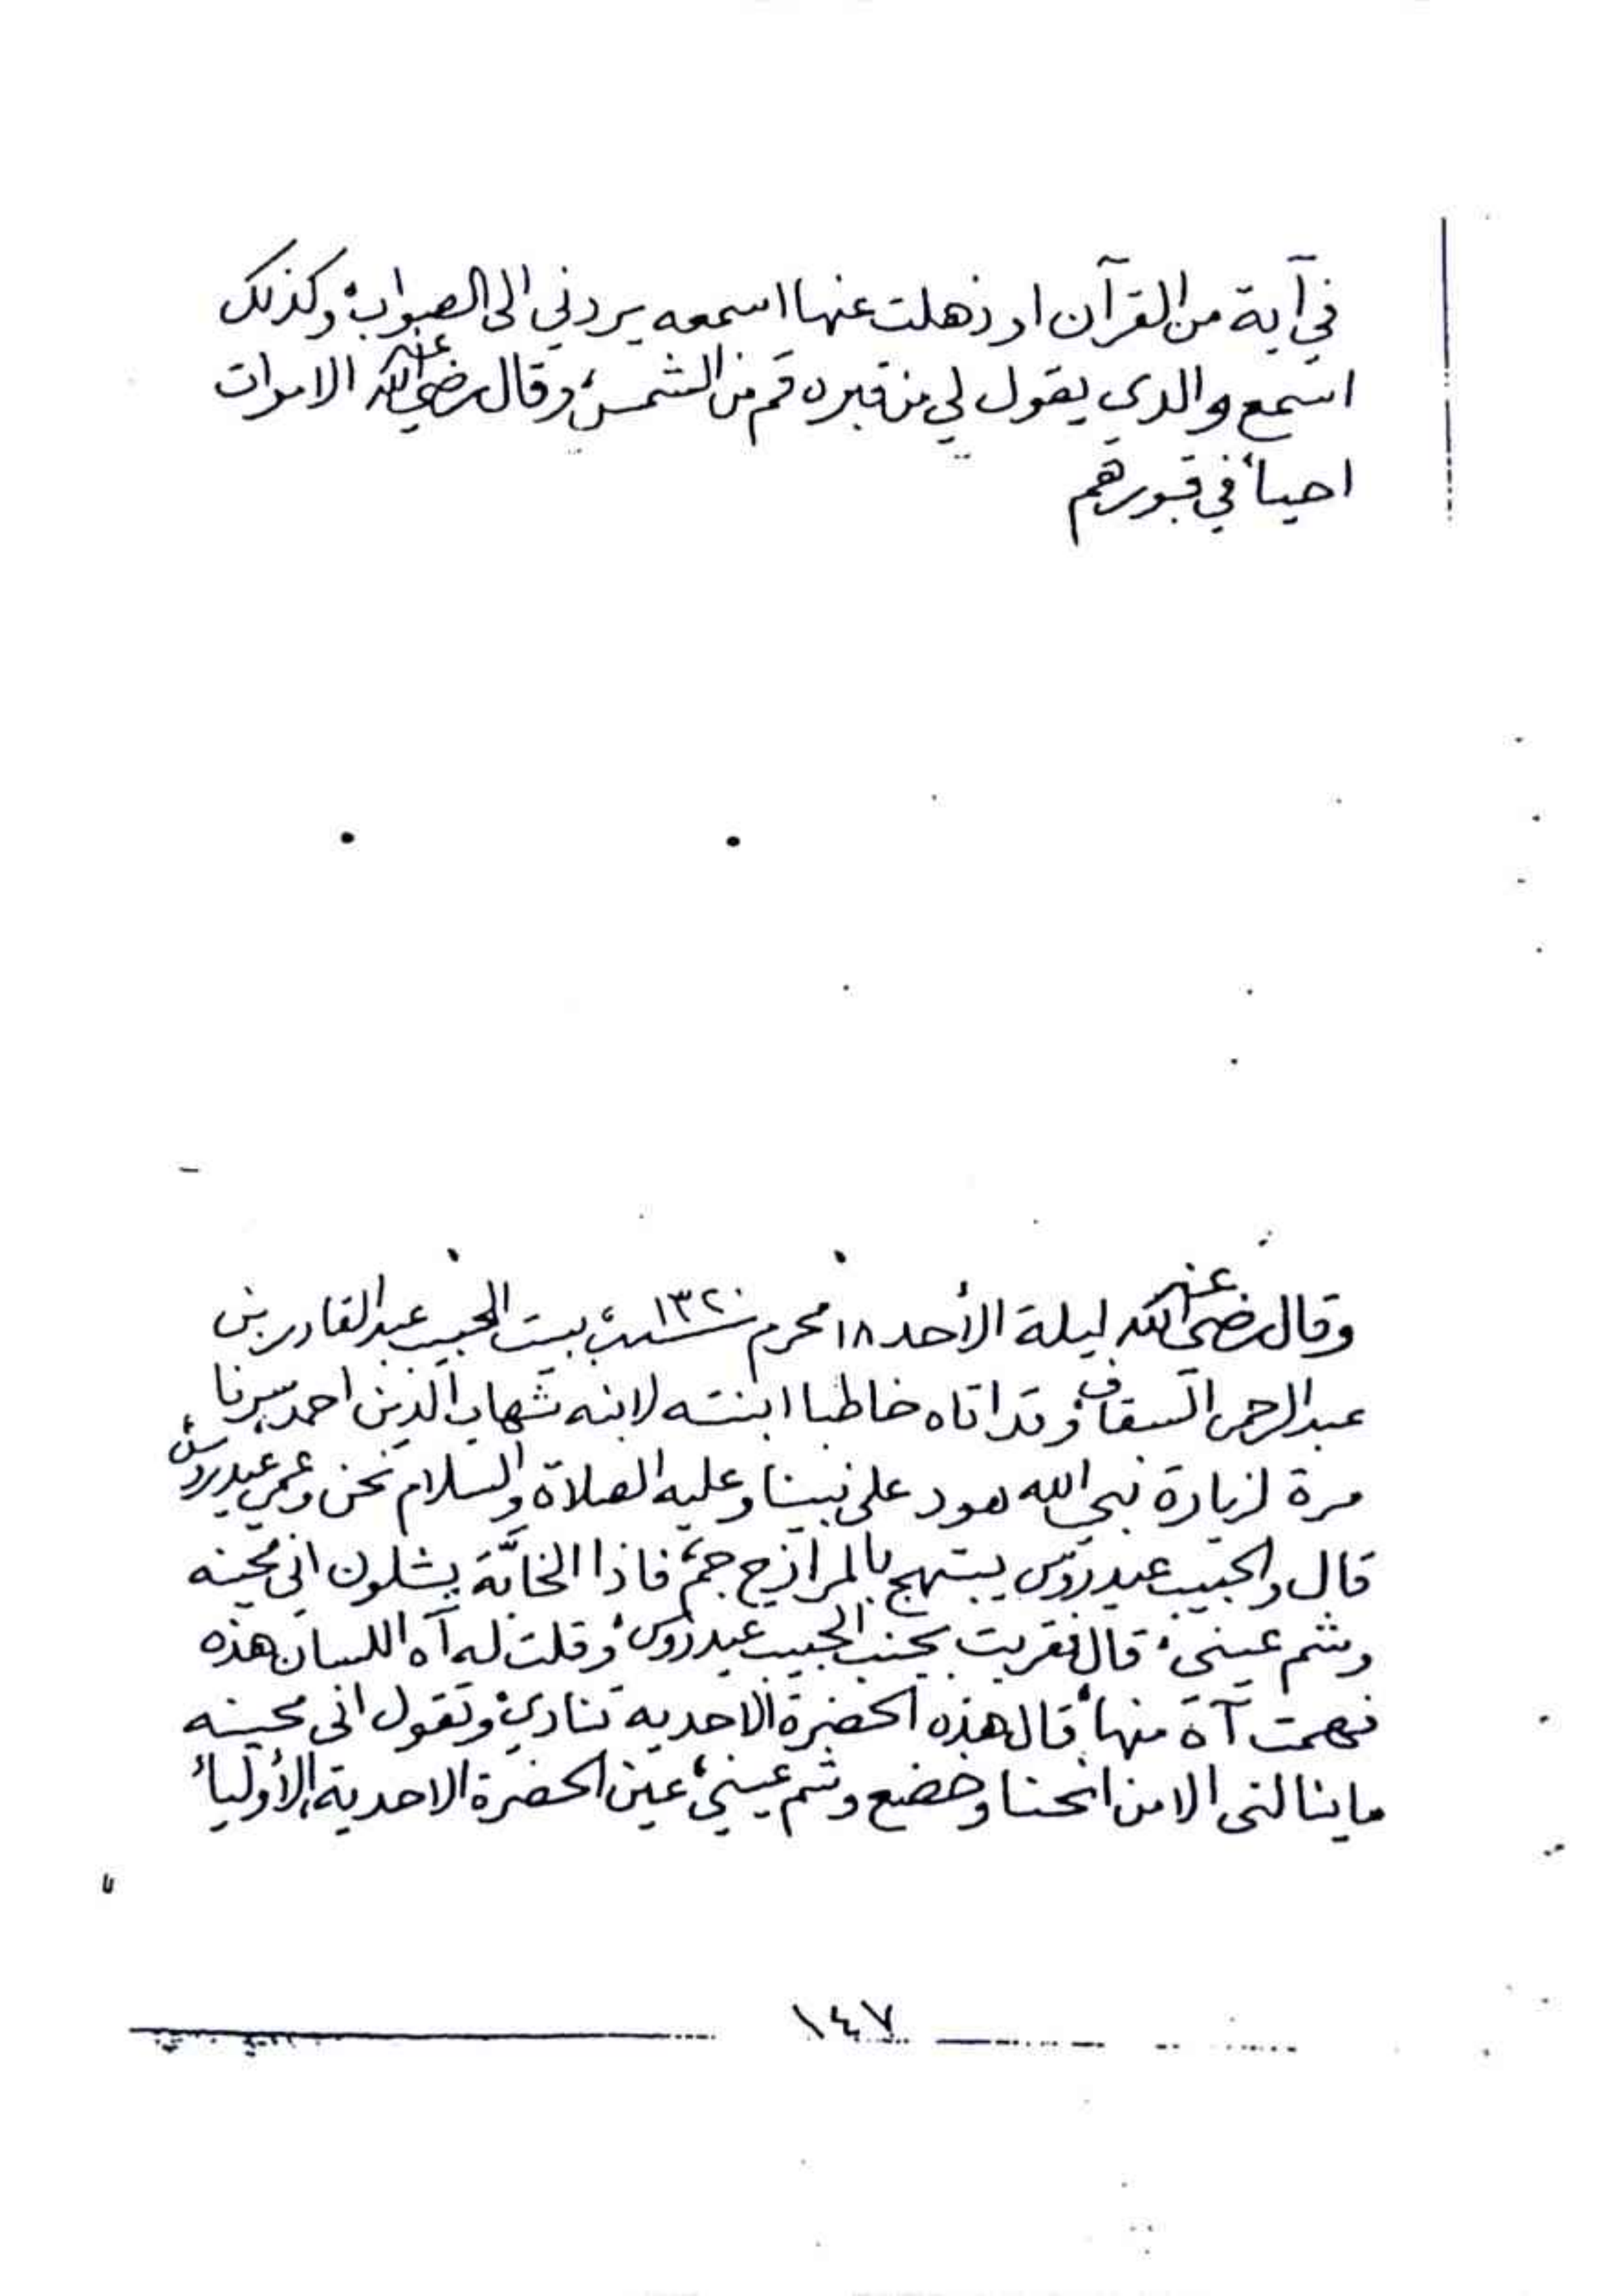 في آية من القرآن او ذهلت عنها اسمعه يردني الى الصواب، وكذلك
اسمع والدي يقول لي من قبره قم من الشمس، وقال رضي الله عنه الاموات
احياء في قبورهم
وقال رضي الله عنه ليلة الأحد ١٨ محرم سنة ١٣٢٠ ببيت الحبيب عبدالقادر بن
عبدالرحمن السقاف وقد اتاه خاطبا ابنته لابنه شهاب الدين احمد سرنا
مرة لزيارة نبي الله هود على نبينا وعليه الصلاة والسلام نحن وعمي عيدروس،
قال والحبيب عيدروس يبتهج بالمرازح جم، فاذا الخابَّة يشلون انى محينه
وشم عيني، قال فقربت بجنب الحبيب عيدروس، وقلت له آه اللسان هذه
فهمت آه منها، قال هذه الحضرة الاحدية تنادي، وتقول انى محينه
ما ينالنى الا من انحنا وخضع وشم عيني، عين الحضرة الاحدية، الأولياء
١٤٧